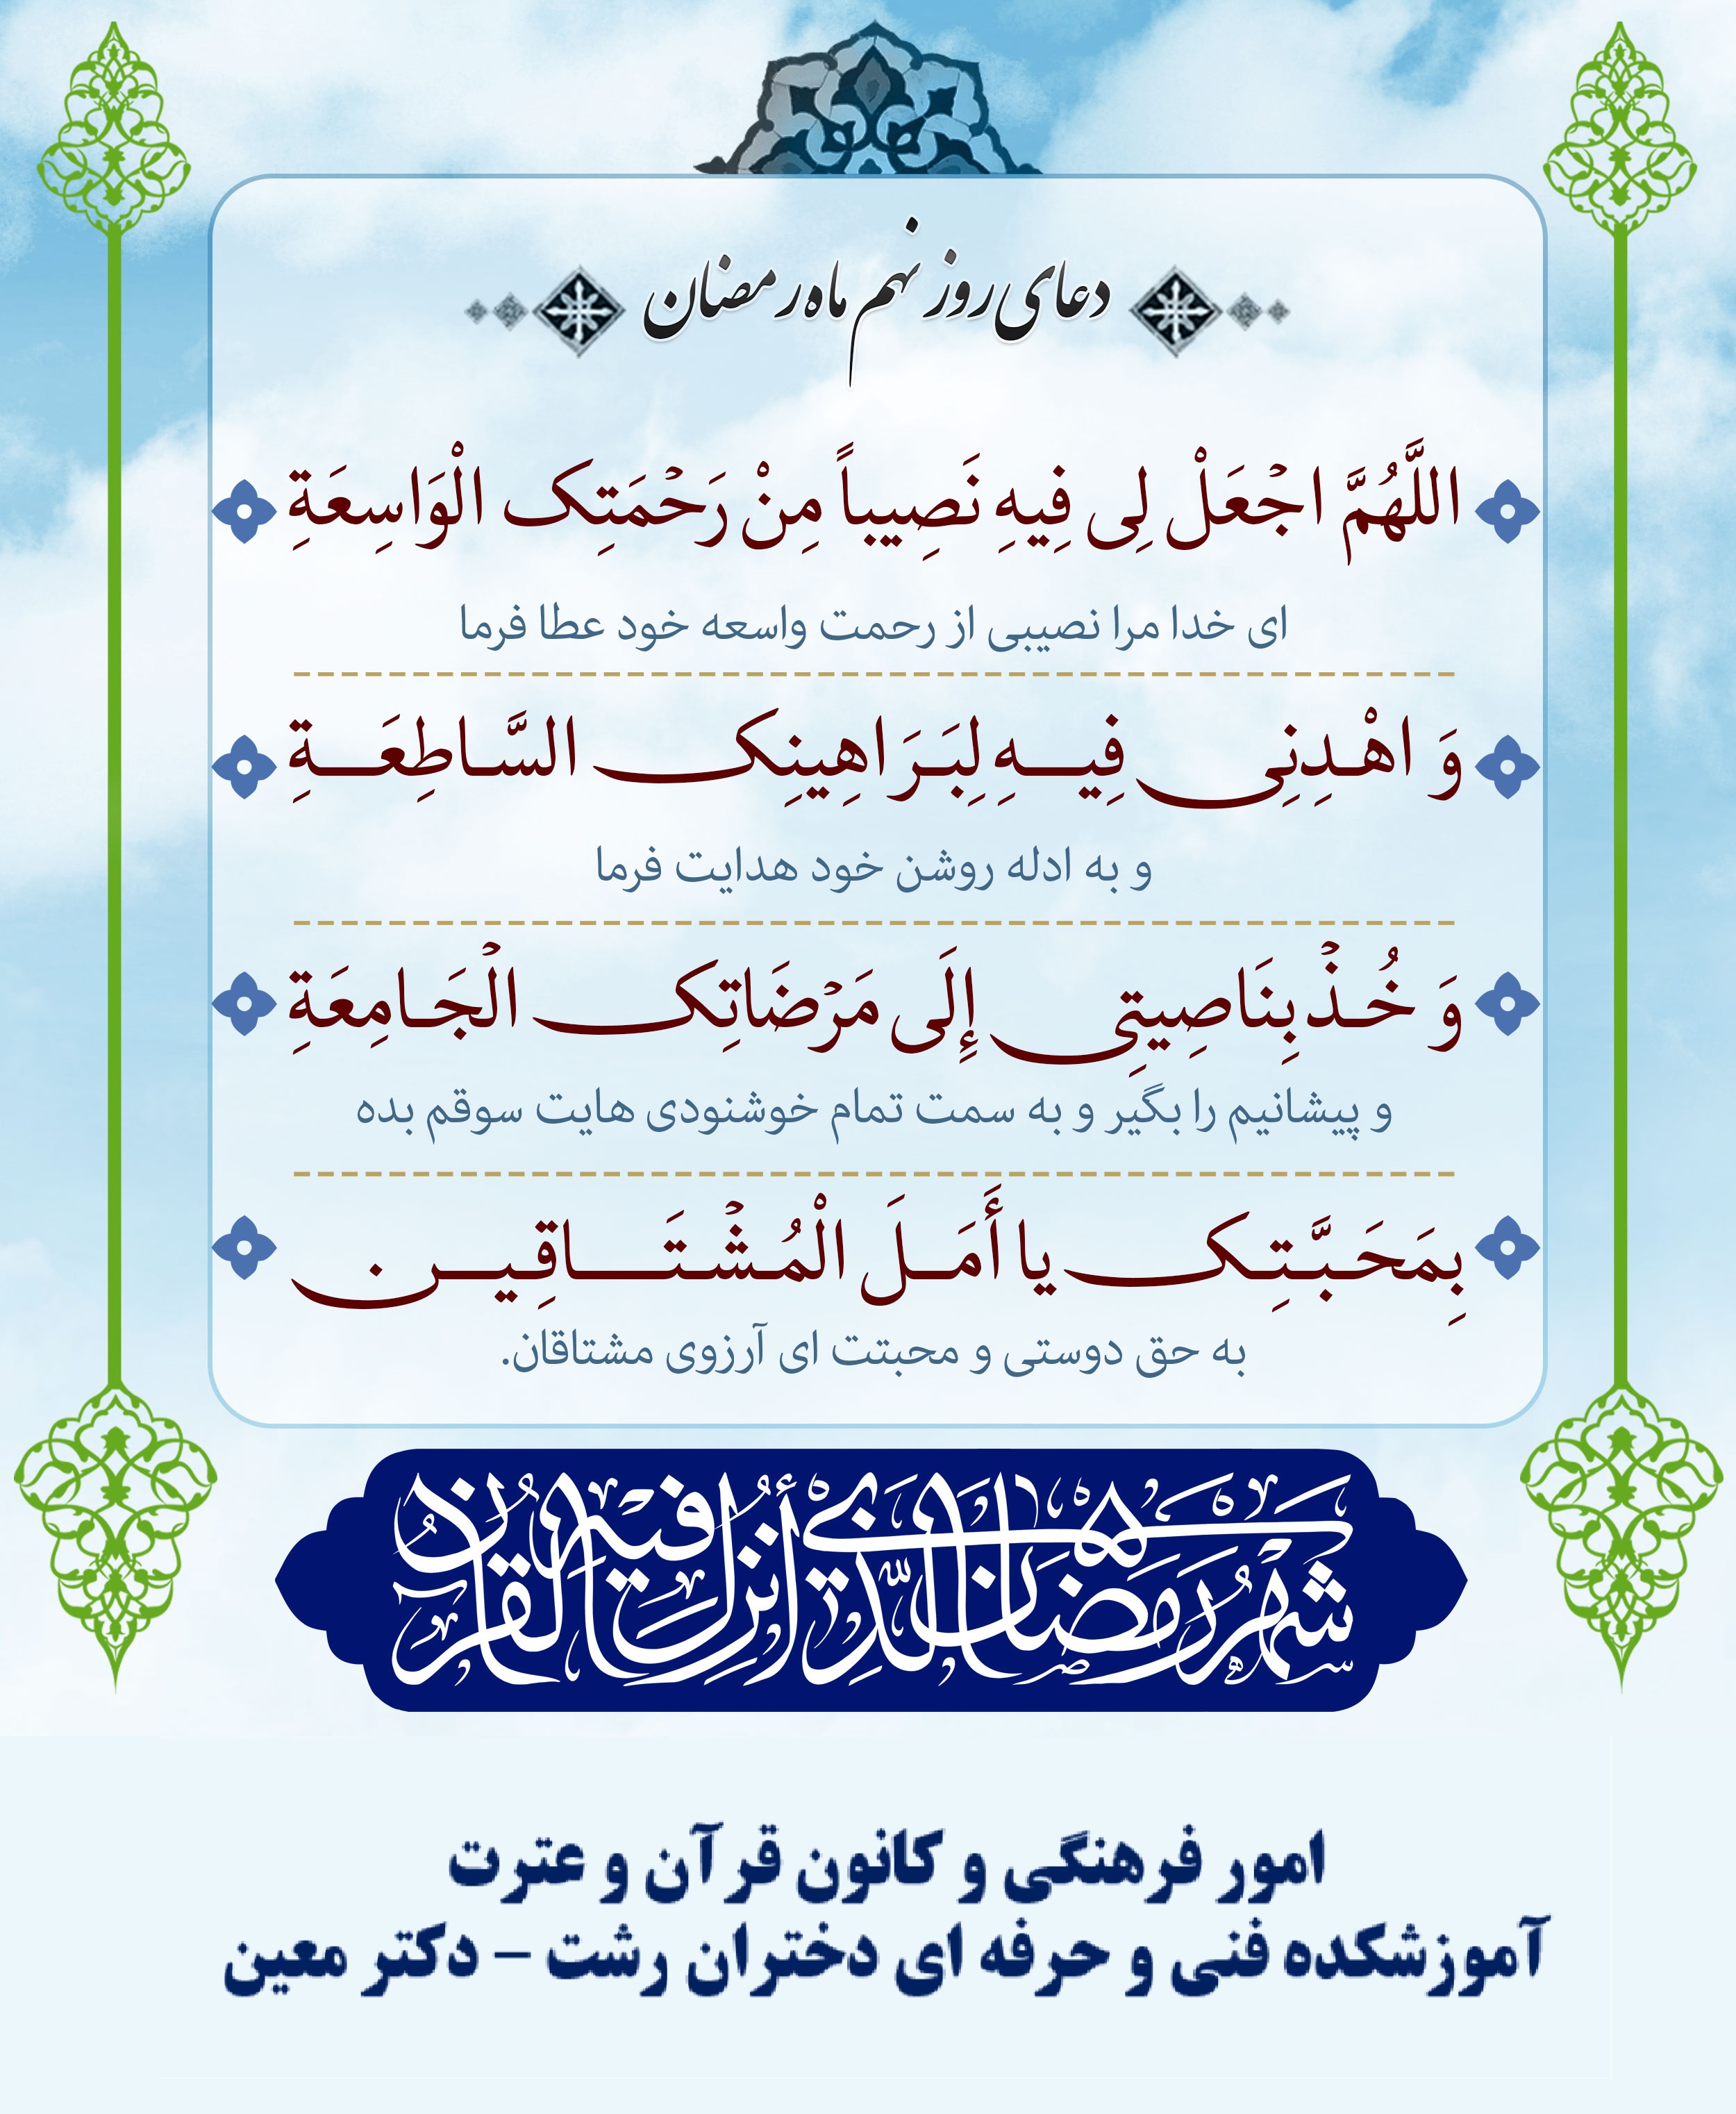 دعای روز نهم ماه رمضان
اللَّهُمَّ اجْعَلْ لِی فِیهِ نَصِیباً مِنْ رَحْمَتِک الْوَاسِعَةِ
ای خدا مرا نصیبی از رحمت واسعه خود عطا فرما
وَ اهْدِنِی فِیهِ لِبَرَاهِینِک السَّاطِعَةِ
و به ادله روشن خود هدایت فرما
وَ خُذْ بِنَاصِیتِی إِلَی مَرْضَاتِک الْجَامِعَةِ
و پیشانیم را بگیر و به سمت تمام خوشنودی هایت سوقم بده
بِمَحَبَّتِک یا أَمَلَ الْمُشْتَاقِین
به حق دوستی و محبتت ای آرزوی مشتاقان.
شهر رمضان الذی أنزل فیه القرآن
امور فرهنگی و کانون قرآن و عترت
آموزشکده فنی و حرفه ای دختران رشت – دکتر معین